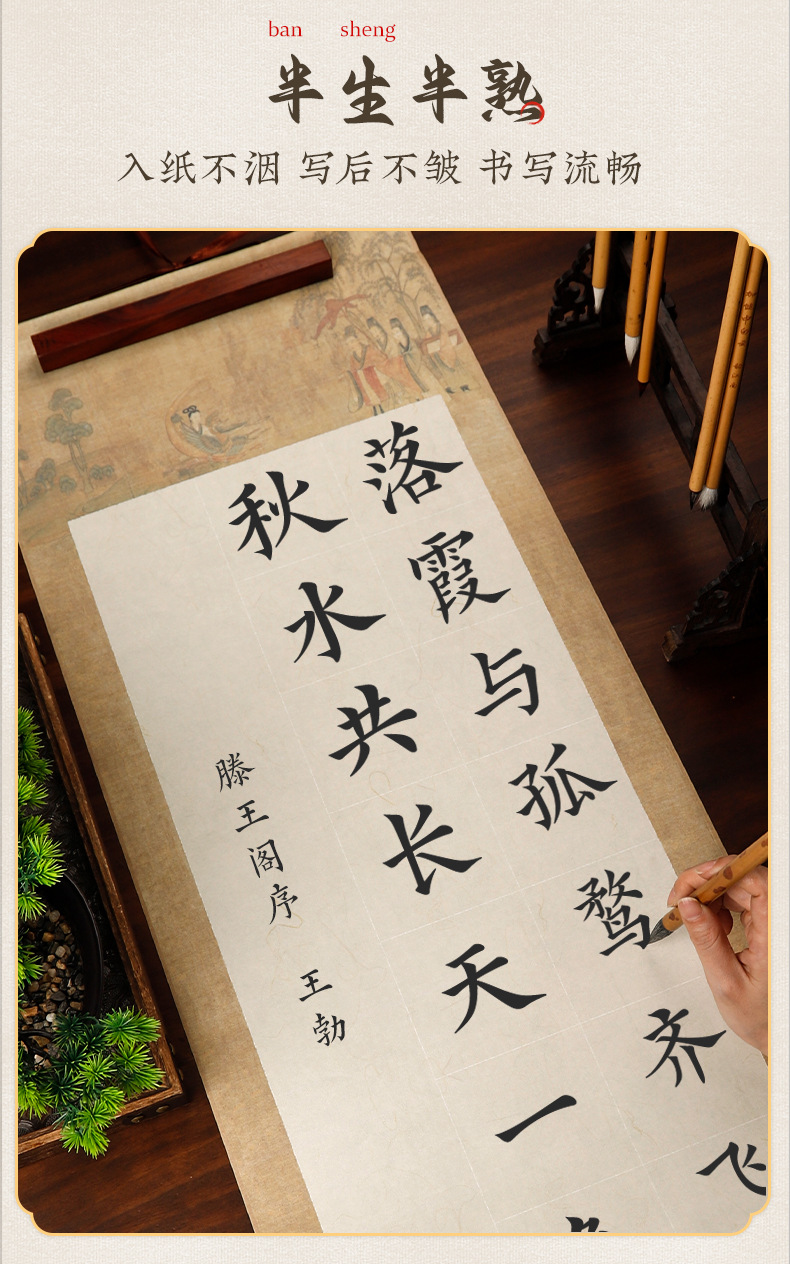 ban sheng
半生半熟
入纸不洇 写后不皱 书写流畅
落霞与孤鹜齐飞
秋水共长天一
滕王阁序 王勃